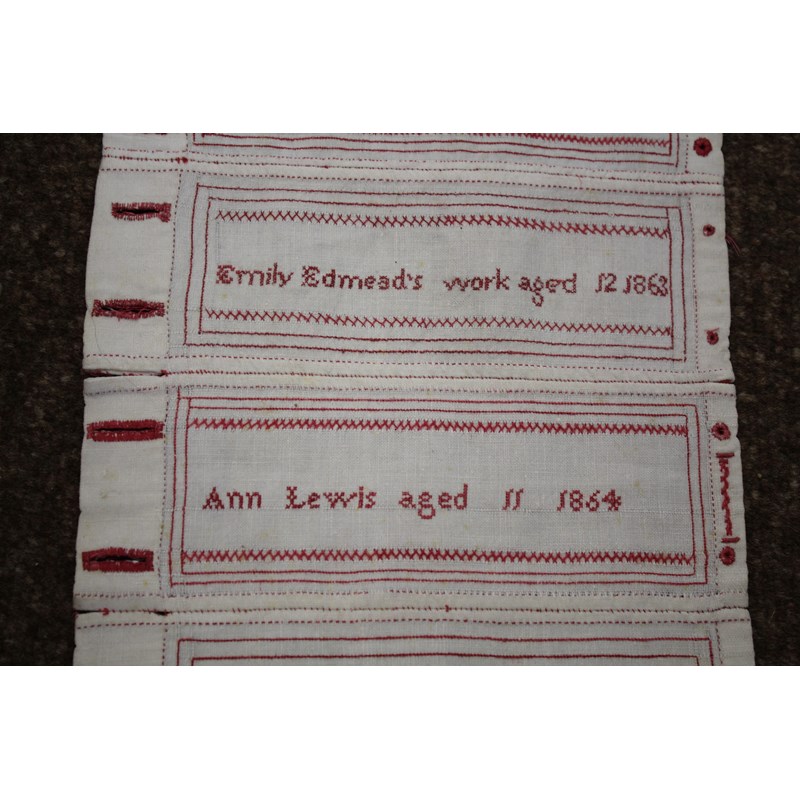 Emily Edmead's work aged 12 1863
Ann Lewis aged 11 1864